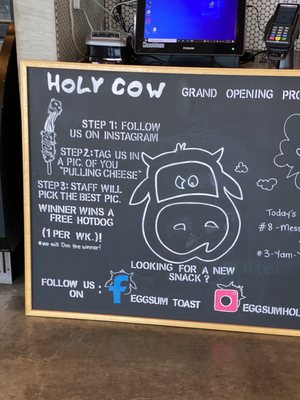 HOLY COW
GRAND OPENING PRO
STEP 1: FOLLOW
US ON INSTAGRAM
STEP2: TAG US IN
A PIC. OF YOU
"PULLING CHEESE"
STEP 3: STAFF WILL
PICK THE BEST PIC.
WINNER WINS A
FREE HOTDOG
(1 PER WK.)!
*we will Dm the winner!
LOOKING FOR A NEW
SNACK?
Today's
#8-Mess
#3-Yam-Y
FOLLOW US:
ON
f
EGGSUM TOAST
EGGSUMHOL